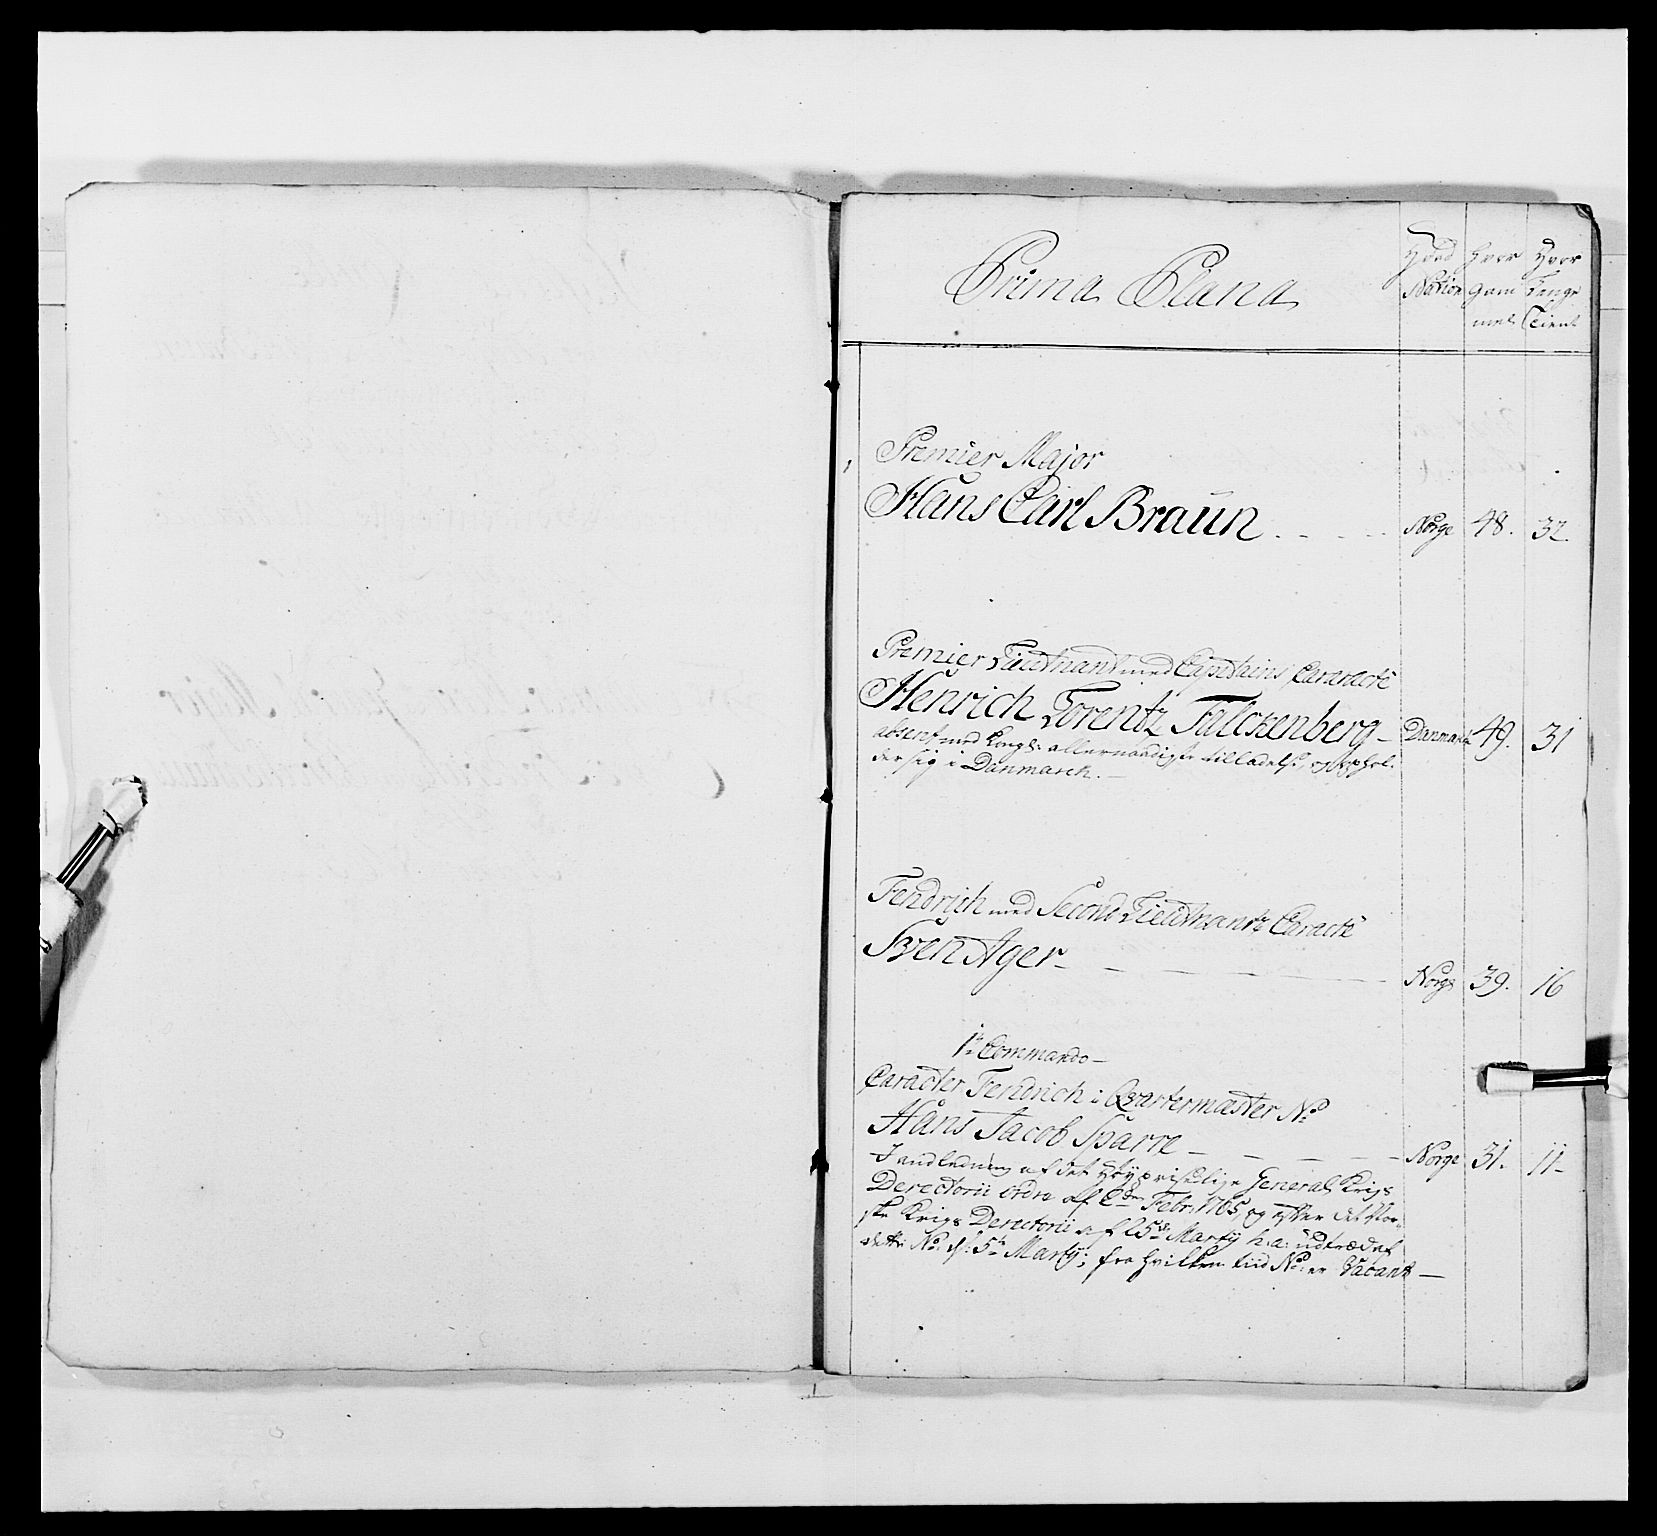 Prima Plana
Hvad Nation
Hvor gam mel
Hvor Længe Tient
1
Premier Major
Hans Carl Braun Norge 48. 32.
Premier Lieutnant med Capitains Cararacte
Henrich Lorentz Falckenberg Danmark 49. 31
absent med Kongl: allernaadigste tilladelse, og ophol:
der sig i Danmarck.
Fendrich med Second Lieutnants Caracte
Sven Ager Norge 39. 16
1te Commando
Caracter Fendrich i Qvartermæster No
Hans Jacob Sparre Norge 31. 11
I anledning af det Høyprislige General Krigs
Derectorii ordre af 2den Febr: 1765, og efter det Nor:
ske Krigs Derectorii af 25de Martij h: a: udtræd af
dette No d: 5te Martij; fra hvilken tiid No: er Vacant